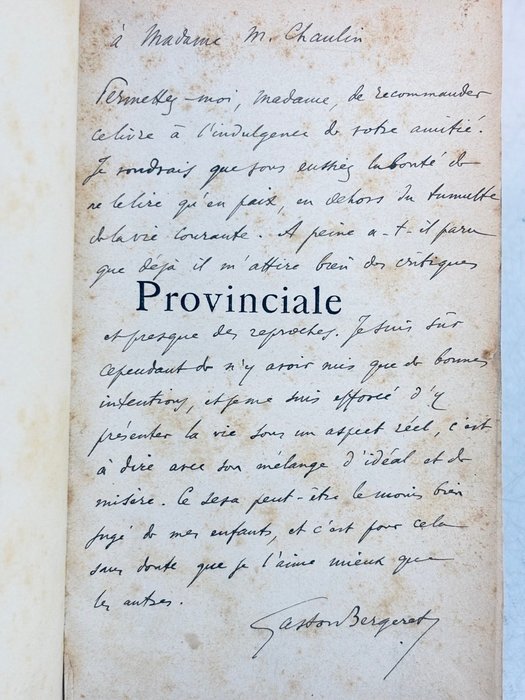 à Madame M. Chaulin
Permettez-moi, madame, de recommander
ce livre à l'indulgence de votre amitié.
Je voudrais que vous eussiez la bonté de
ne le lire qu'en paix, en dehors du tumulte
de la vie courante. A peine a-t-il paru
que déjà il m'attire bien des critiques
Provinciale
et presque des reproches. Je suis sûr
cependant de n'y avoir mis que de bonnes
intentions, et je me suis efforcé d'y
présenter la vie sous un aspect réel, c'est
à dire avec son mélange d'idéal et de
misère. Ce sera peut-être le moins bien
jugé de mes enfants, et c'est pour cela
sans doute que je l'aime mieux que
les autres.
Gaston Bergeret